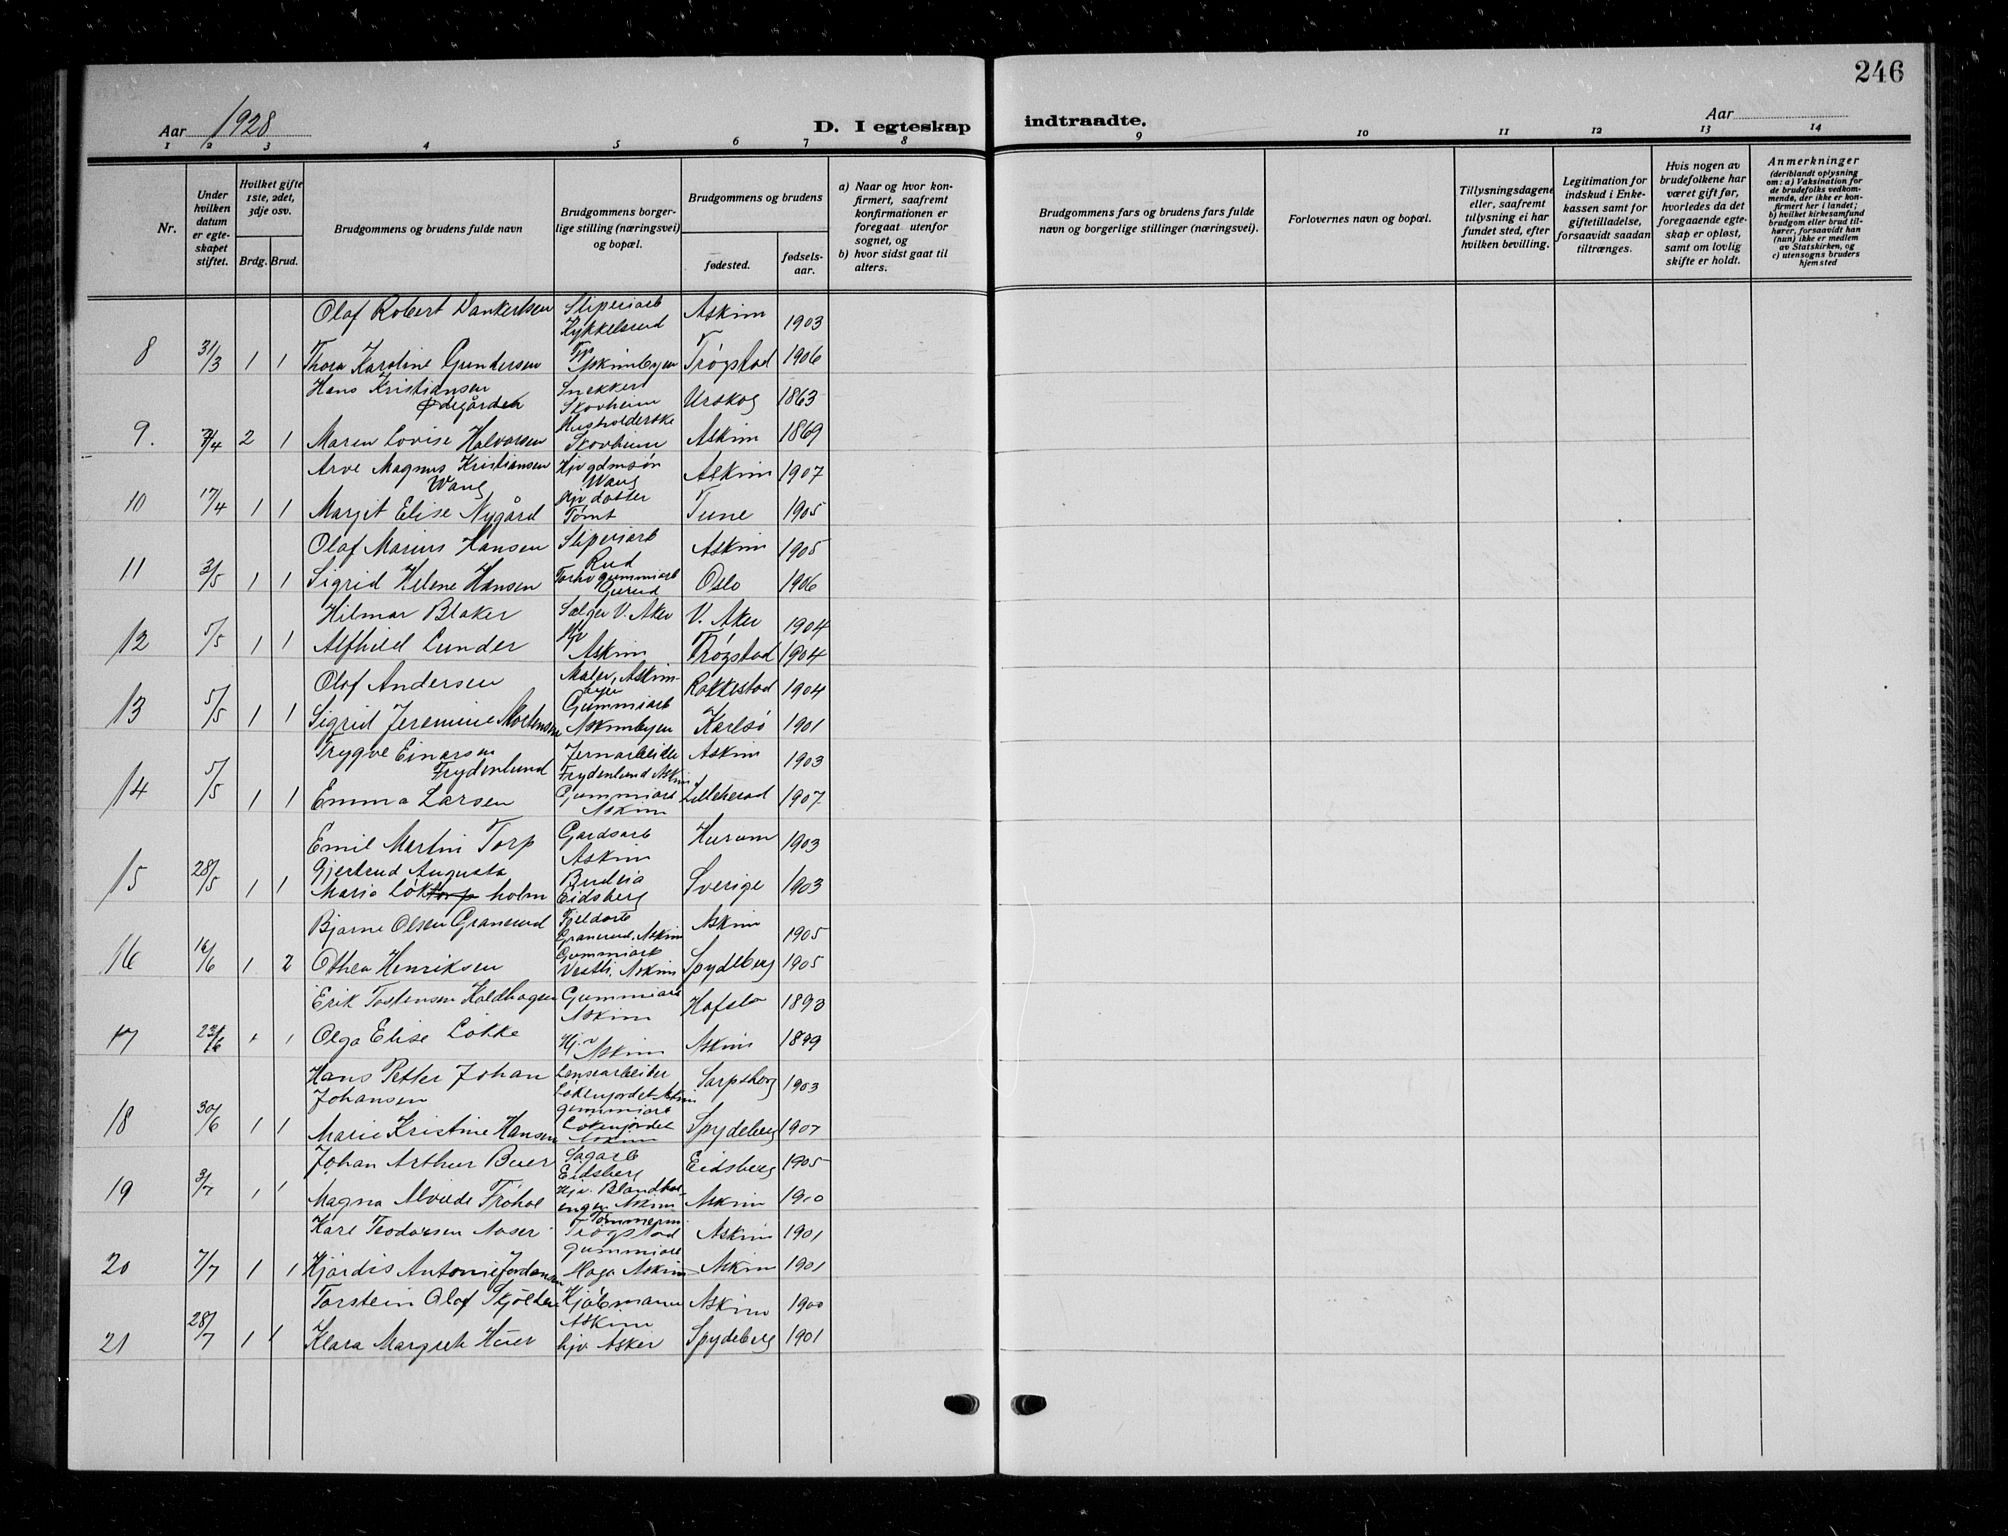 246
Aar 1928
D. I egteskap indtraadte.
Aar
1 2 3 4 5 6 7 8 9 10 11 12 13 14
Nr.
Under hvilken datum er egteskapet stiftet.
Hvilket gifte 1ste, 2det, 3dje osv.
Brdg. Brud.
Brudgommens og brudens fulde navn
Brudgommens borgerlige stilling (næringsvei) og bopæl.
Brudgommens og brudens
fødested.
fødselsaar.
a) Naar og hvor konfirmert, saafremt konfirmationen er foregaat utenfor sognet, og
b) hvor sidst gaat til alters.
Brudgommens fars og brudens fars fulde navn og borgerlige stillinger (næringsvei).
Forlovernes navn og bopæl.
Tillysningsdagene eller, saafremt tillysning ei har fundet sted, efter hvilken bevilling.
Legitimation for indskud i Enkekassen samt for giftetilladelse, forsaavidt saadan tiltrænges.
Hvis nogen av brudefolkene har været gift før, hvorledes da det foregaaende egteskap er opløst, samt om lovlig skifte er holdt.
Anmerkninger (deriblandt oplysning om: a) Vaksination for de brudefolks vedkommende, der ikke er konfirmert her i landet; b) hvilket kirkesamfund brudgom eller brud tilhører, forsaavidt han (hun) ikke er medlem av Statskirken, og c) utensogns bruders hjemsted
Olaf Robert Dankertsen Sliperiarb Kykkelsrud Askim 1903
8 31/3 1 1 Thora Karoline Gundersen Askimbyen Trøgstad 1906
Hans Kristiansen Ødegården Snekker Skovheim Urskog 1863
9. 2 1 Maren Lovise Halvorsen Husholderske Skovheim Askim 1869
Arve Magnus Kristiansen Wang Hjv gdmsøn Wang Askim 1907
10 17/4 1 1 Margit Elise Nygård Hjv datter Tømt Tune 1905
Olaf Marius Hansen Sliperiarb Rud Askim 1905
11 3/5 1 1 Sigrid Helene Hansen gummiarb Oslo 1906
Hilmar Blaker Sælger V. Aker V. Aker 1904
12 5/5 1 1 Alfhild Lunder Hjv Askim Trøgstad 1904
Olaf Andersen Maler, Askimbyen Rakkestad 1904
13 5/5 1 1 Sigrid Jeremine Mortensen Gummiarb Askimbyen Karlsø 1901
Trygve Einarsen Frydenlund Jernarbeider Frydenlund Askim Askim 1903
14 5/5 1 1 Emma Larsen Gummiarb Askim Lilleherad 1907
Emil Martin Torp Gardsarb Askim Hurum 1903
15 28/5 1 1 Gjertrud Augusta Maria Løktorp holm Budeia Eidsberg Sverige 1903
Bjarne Olsen Granerud Fjeldarb Granerud, Askim Askim 1905
16 16/6 1 2 Othea Henriksen Gummiarb Vestli, Askim Spydeberg 1905
Erik Tostensen Koldhagen Gummiarb Askim Hafslo 1893
17 23/6 1 1 Olga Elise Løkke Hjv Askim Askim 1899
Hans Petter Johan Johansen Lensearbeider Løkenjordet Askim Sarpsborg 1903
18 30/6 1 1 Marie Kristine Hansen gummiarb Løkenjordet Askim Spydeberg 1907
Johan Arthur Buer Sagarb Eidsberg Eidsberg 1905
19 3/7 1 1 Magna Alvide Trøhol Hjv. Askim Askim 1910
Karl Teodorsen Aaser Tømmerm. Trøgstad Askim 1901
20 7/7 1 1 Hjørdis Antonie Jordansen gummiarb Haga Askim Askim 1901
Torstein Olaf Skjolden Kjøbmann Askim Askim 1900
21 28/7 1 1 Klara Margreth Huer hjv Asker Spydeberg 1901